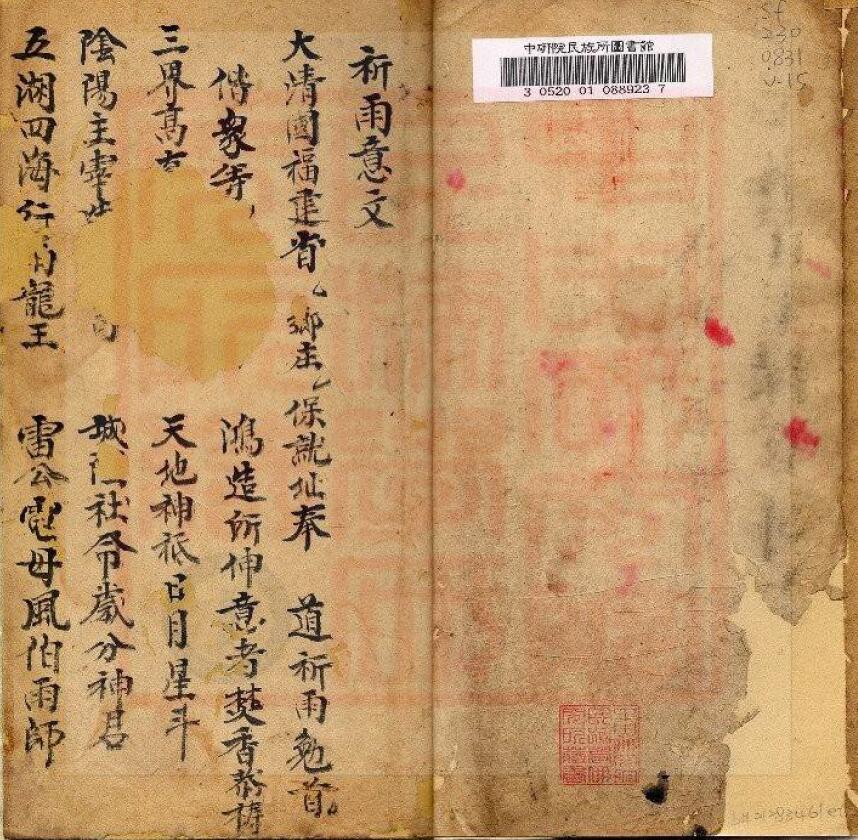 中研院民族所圖書館
3 0520 01 088923 7
230
0831
v.15
祈雨意文
大清國福建省鄉庄保就址奉 道祈雨勉首
傳衆等 鴻造所伸意者焚香恭禱
三界高 天地神祇日月星斗
陰陽主宰 城社令歲分神君
五湖四海行雨龍王 雷公電母風伯雨師